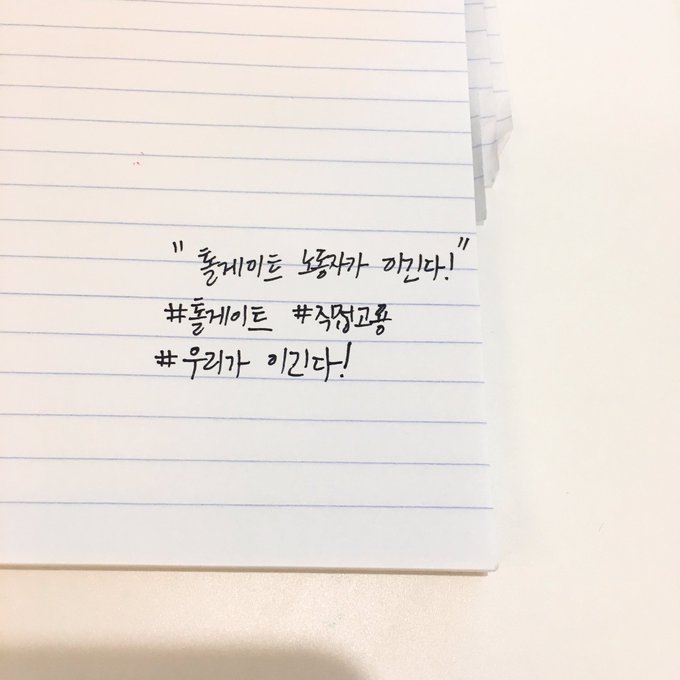 "톨게이트 노동자가 이긴다!"
#톨게이트 #직접고용
#우리가 이긴다!